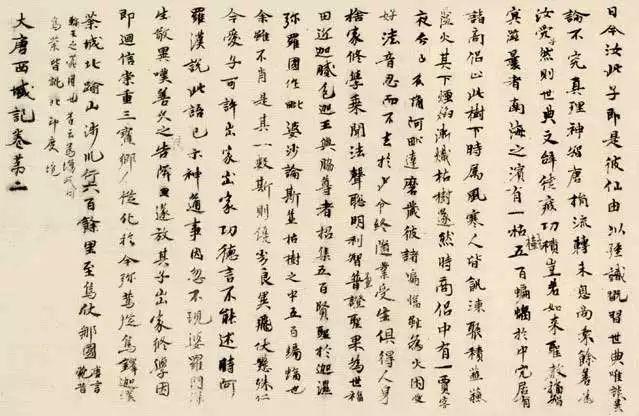 日今汝此子即是彼仙由以強識翫習世典唯談異
論不究真理神智唐捐流轉未息尚乘餘善為
汝愛子然則世典文辞徒疲功積豈若如來聖教福智
冥滋曩者南海之濱有一枯樹五百蝙蝠於中穴居有
諸商侶止此樹下時属風寒人皆飢凍聚積樵蘇
蘊火其下煙焰漸熾枯樹遂然時商侶中有一賈客
夜分已後誦阿毗達磨藏彼諸蝙蝠雖為火困愛
好法音忍而不去於此命終隨業受生俱得人身
捨家修學乘聞法聲聰明利智並證聖果為世福
田近迦膩色迦王與脇尊者招集五百賢聖於迦濕
弥羅國作毗婆沙論斯並枯樹之中五百蝙蝠也
余雖不肖是其一數斯則優劣良異飛伏懸殊仁
今愛子可許出家出家功德言不能述時阿
羅漢說此語已示神通事因忽不現婆羅門深
生敬異嘆善久之告隣里遂放其子出家修學因
即迴信崇重三寶鄉人從化於今弥篤從烏鐸迦漢
荼城北踰山涉川行六百餘里至烏仗那國唐言苑昔
輪王之苑囿也旧云烏場或曰
烏荼皆訛北印度境
大唐西域記卷第二